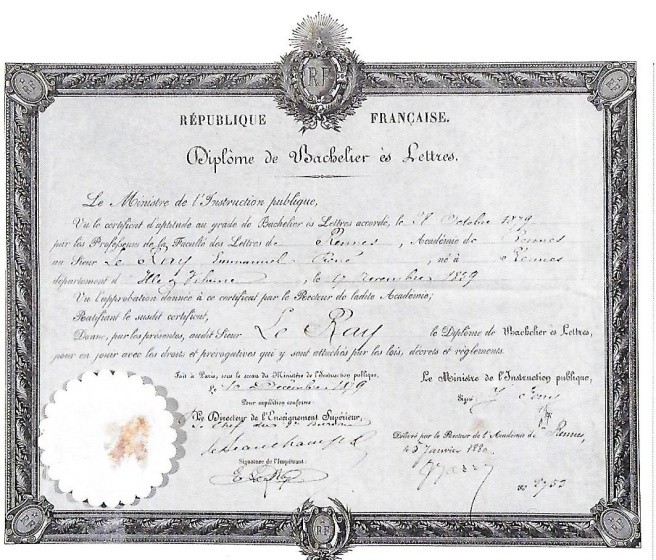 RF
RÉPUBLIQUE FRANÇAISE.
Diplôme de Bachelier ès Lettres.
Le Ministre de l'Instruction publique,
Vu le certificat d'aptitude au grade de Bachelier ès Lettres accordé, le Octobre 1879
par les Professeurs de la Faculté des Lettres de Rennes, Académie de Rennes
au Sieur Le Ray Emmanuel René, né à Rennes
département d'Ille & Vilaine, le novembre 1859
Vu l'approbation donnée à ce certificat par le Recteur de ladite Académie;
Ratifiant le susdit certificat,
Donne, par les présentes, audit Sieur Le Ray le Diplôme de Bachelier ès Lettres,
pour en jouir avec les droits et prérogatives qui y sont attachés par les lois, décrets et règlements.
Fait à Paris, sous le sceau du Ministère de l'Instruction publique,
le 10 Décembre 1879
Pour expédition conforme:
Le Directeur de l'Enseignement Supérieur,
Le Chef du Bureau
Signature de l'Impétrant:
E. Le Ray
Le Ministre de l'Instruction publique,
Signé
Délivré par le Recteur de l'Académie de Rennes,
le 5 Janvier 1880
RF